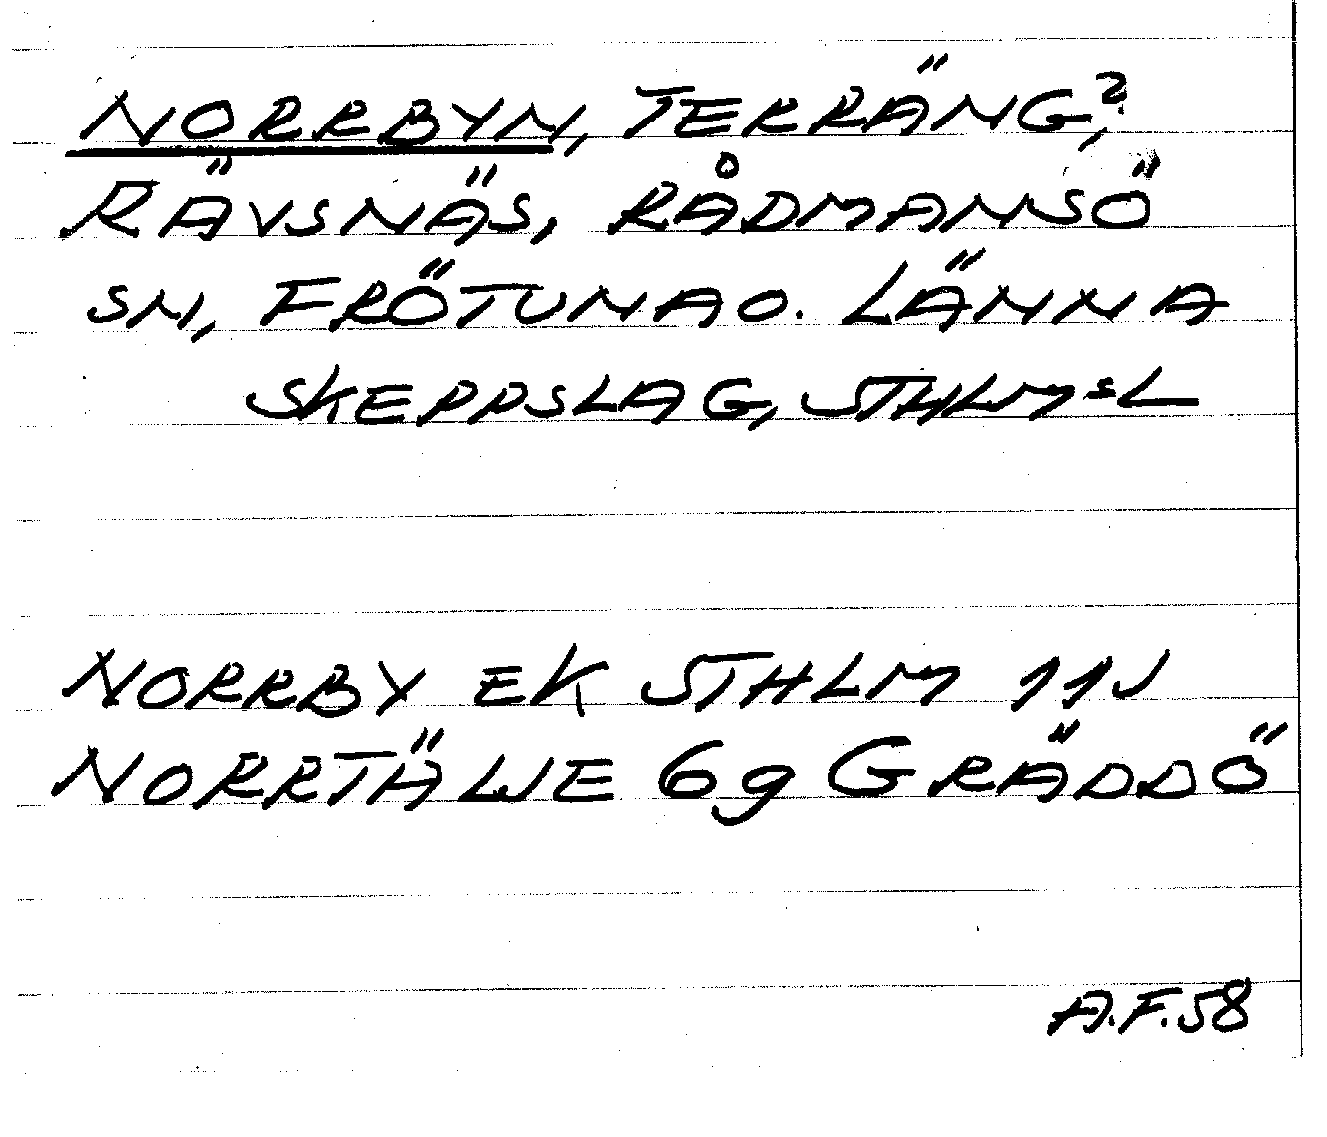 NORRBYN, TERRÄNG?,
RÄVSNÄS, RÅDMANSÖ
SN, FRÖTUNA O. LÄNNA
SKEPPSLAG, STHLMSL
NORRBY EK STHLM 11J
NORRTÄLJE 6g GRÄDDÖ
A.F.58